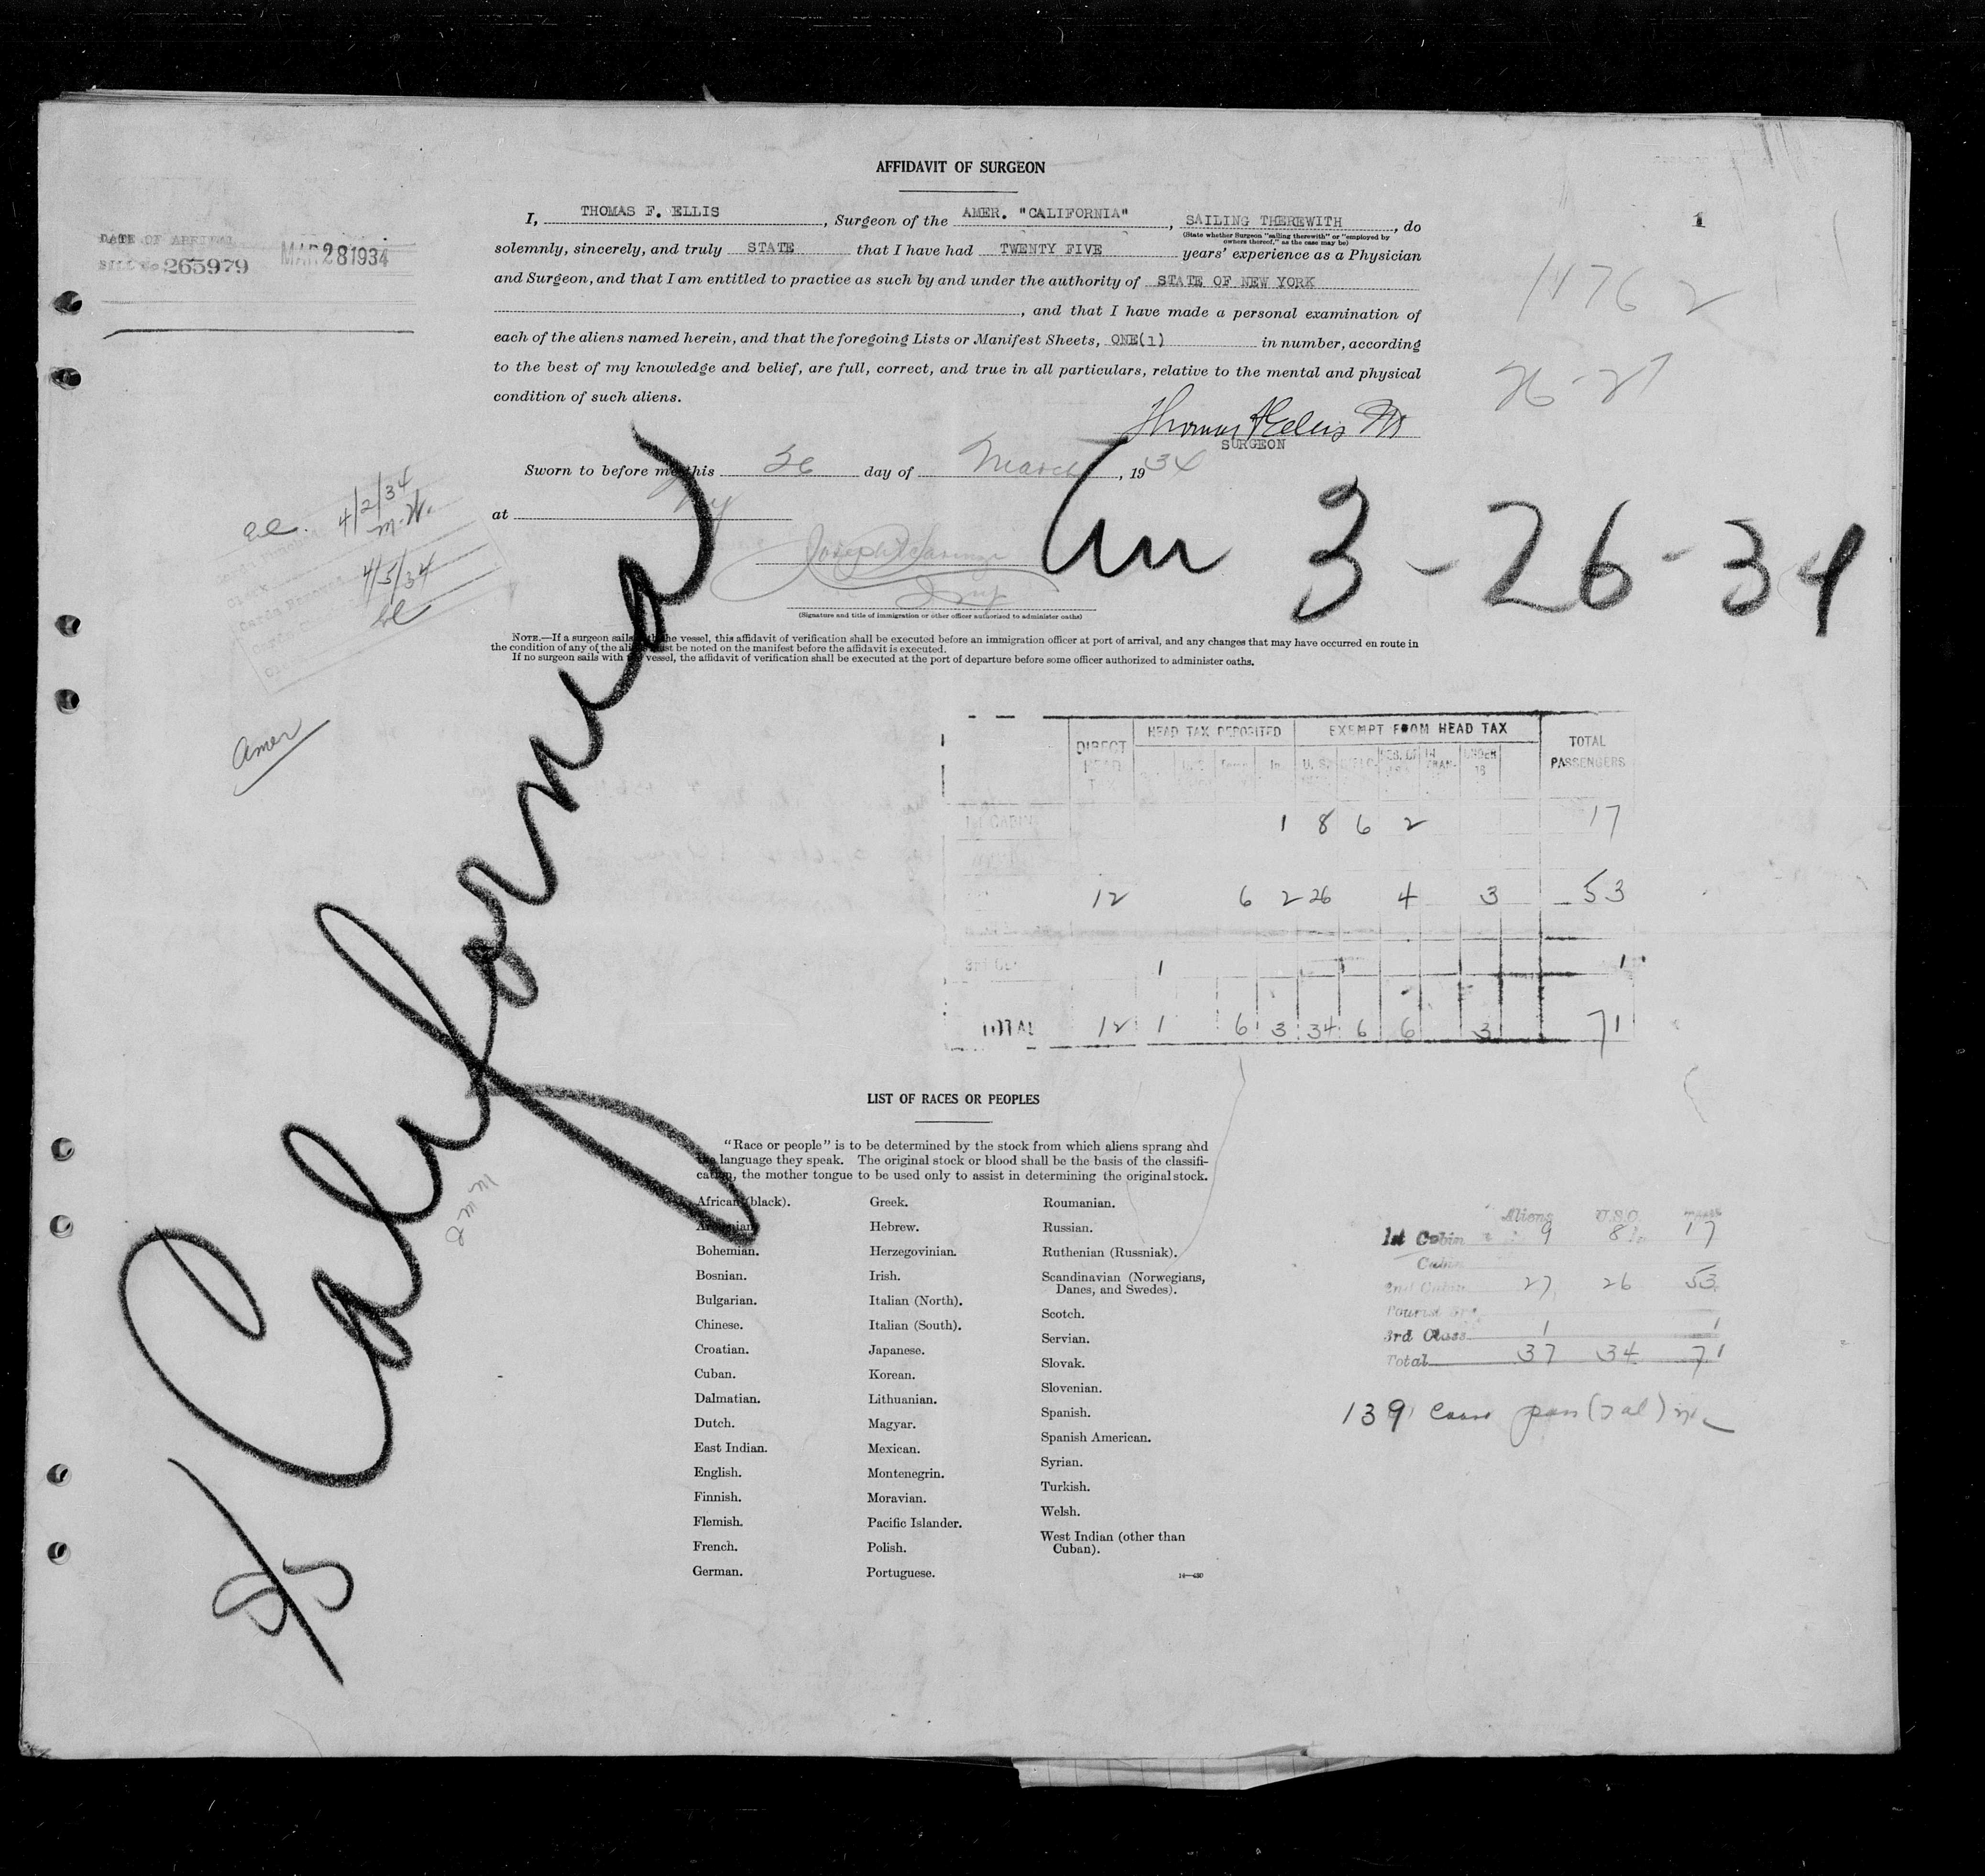 AFFIDAVIT OF SURGEON
I, THOMAS F. ELLIS, Surgeon of the AMER. "CALIFORNIA", SAILING THEREWITH, do
(State whether Surgeon "sailing therewith" or "employed by owners thereof," as the case may be)
solemnly, sincerely, and truly STATE that I have had TWENTY FIVE years' experience as a Physician
and Surgeon, and that I am entitled to practice as such by and under the authority of STATE OF NEW YORK
, and that I have made a personal examination of
each of the aliens named herein, and that the foregoing Lists or Manifest Sheets, ONE(1) in number, according
to the best of my knowledge and belief, are full, correct, and true in all particulars, relative to the mental and physical
condition of such aliens.
SURGEON
Sworn to before me this 26 day of March, 1934
at NY
(Signature and title of immigration or other officer authorized to administer oaths)
NOTE.—If a surgeon sails with the vessel, this affidavit of verification shall be executed before an immigration officer at port of arrival, and any changes that may have occurred en route in
the condition of any of the aliens must be noted on the manifest before the affidavit is executed.
If no surgeon sails with the vessel, the affidavit of verification shall be executed at the port of departure before some officer authorized to administer oaths.
1
DATE OF ARRIVAL MAR 28 1934
BILL No 265979
4/2/34
M.W.
4/5/34
Amer
SS California
3-26-34
DIRECT HEAD TAX HEAD TAX DEPOSITED EXEMPT FROM HEAD TAX TOTAL PASSENGERS
1st CABIN 1 8 6 2 17
12 6 2 26 4 3 53
3rd CL 1 1
TOTAL 12 1 6 3 34 6 6 3 71
LIST OF RACES OR PEOPLES
"Race or people" is to be determined by the stock from which aliens sprang and
the language they speak. The original stock or blood shall be the basis of the classifi-
cation, the mother tongue to be used only to assist in determining the original stock.
African (black).
Armenian.
Bohemian.
Bosnian.
Bulgarian.
Chinese.
Croatian.
Cuban.
Dalmatian.
Dutch.
East Indian.
English.
Finnish.
Flemish.
French.
German.
Greek.
Hebrew.
Herzegovinian.
Irish.
Italian (North).
Italian (South).
Japanese.
Korean.
Lithuanian.
Magyar.
Mexican.
Montenegrin.
Moravian.
Pacific Islander.
Polish.
Portuguese.
Roumanian.
Russian.
Ruthenian (Russniak).
Scandinavian (Norwegians,
Danes, and Swedes).
Scotch.
Servian.
Slovak.
Slovenian.
Spanish.
Spanish American.
Syrian.
Turkish.
Welsh.
West Indian (other than
Cuban).
Aliens U.S.C. Total
1st Cabin 9 8 17
Cabin
2nd Cabin 27 26 53
Tourist
3rd Class 1 1
Total 37 34 71
139